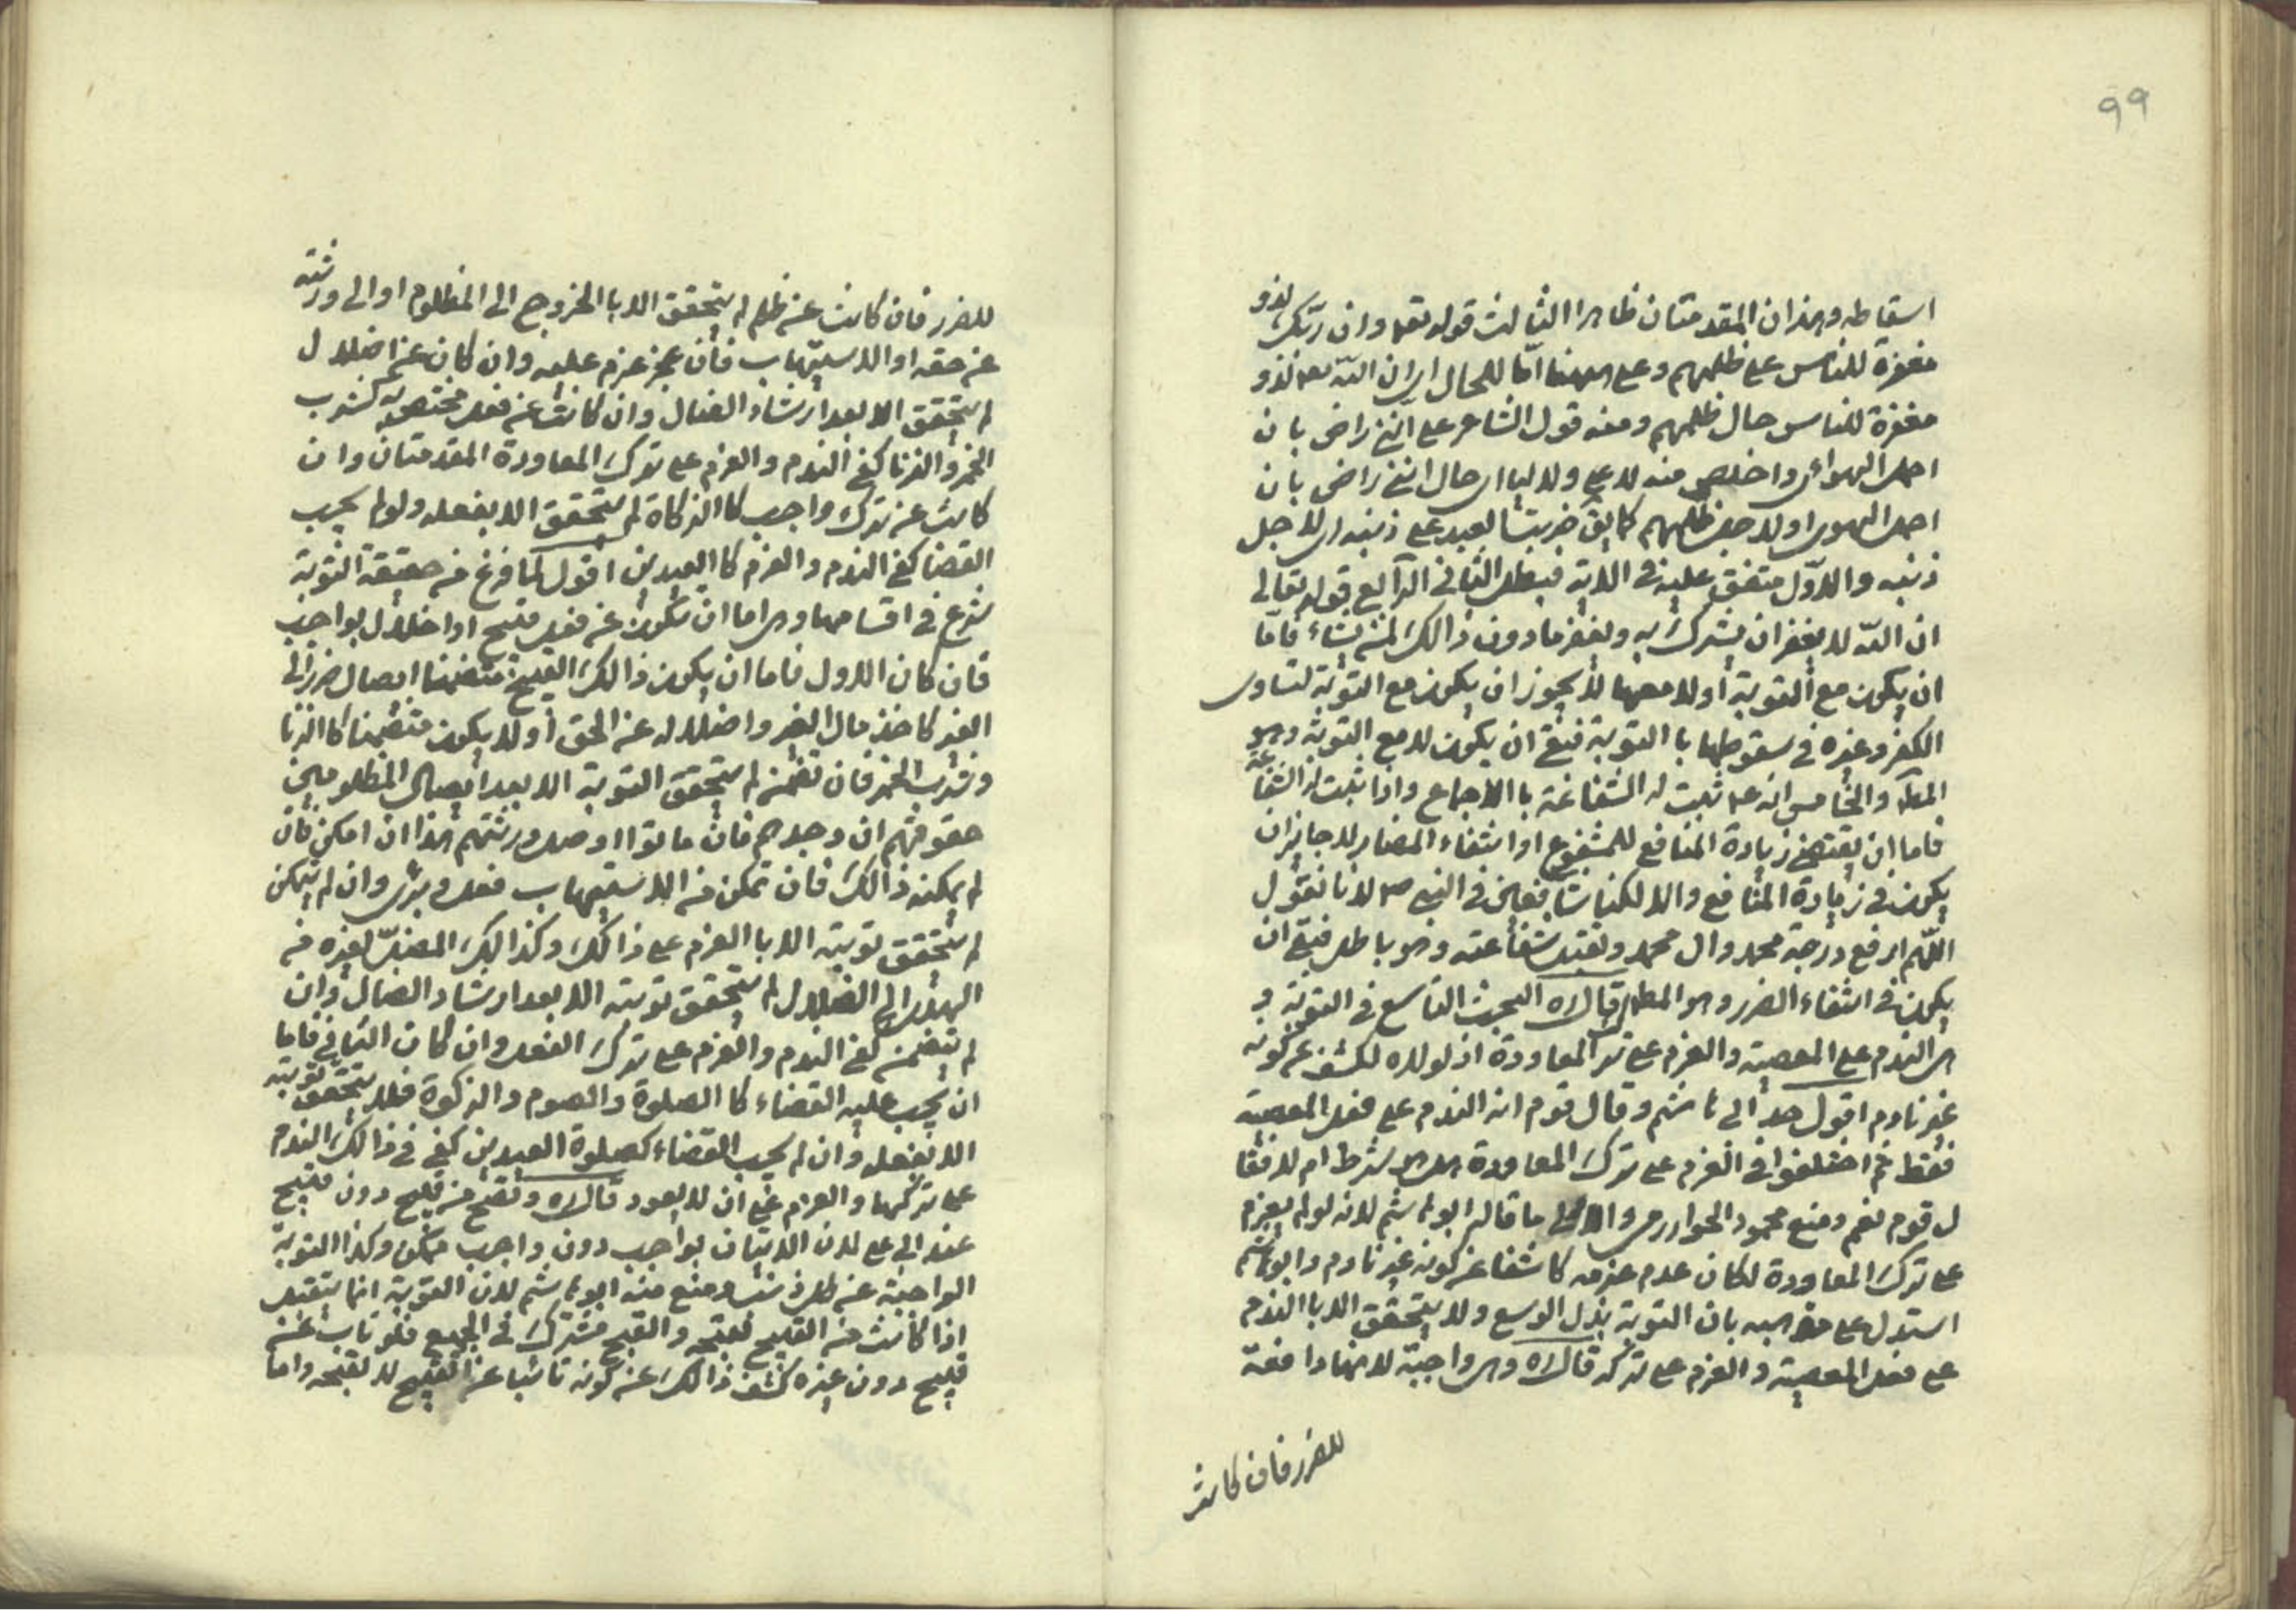 ٩٩
اسقاطه وهذان المقدمتان ظاهرا الثالث قوله تعه وان ربك لذو
مغفرة للناس على ظلمهم وعلى ههنا اما للحال اى ان الله تعه لذو
مغفرة للناس حال ظلمهم ومنه قول الشاعر على اننى راضى بان
احمل الهواى واخلص منه لا على ولا ليا اى حال اننى راضى بان
احمل الهوى او لاجل ظلمهم كما يق ضربت العبد على ذنبه اى لاجل
ذنبه والاول متفق عليه فى الاية فبطل الثانى الرابع قوله تعالى
ان الله لا يغفر ان يشرك به ويغفر مادون ذالك لمن يشاء فاما
ان يكون مع التوبة أولا معها لا يجوز ان يكون مع التوبة لتساوى
الكفر وغيره فى سقوطهما باالتوبة فبقى ان يكون لا مع التوبة وهو
المط والخامس انه عم ثبت له الشفاعة باالاجماع واذا ثبت له الشفاعة
فاما ان يقتضى زيادة المنافع للمشفوع او انتفاء المضار لا جايز ان
يكون فى زيادة المنافع والا لكنا شافعين فى النبى ص لانا نقول
اللهم ارفع درجة محمد وال محمد وتقبل شفاعته وهو باطل فبقى ان
يكون فى انتفاء الضرر وهو المط قال ره البحث التاسع فى التوبة و
هى الندم على المعصية والعزم على ترك المعاودة اذ لولاه لكشف عن كونه
غير نادم اقول حد ابى هاشم وقال قوم انه الندم على فعل المعصية
فقط ثم اختلفوا فى العزم على ترك المعاودة هل هو شرط ام لا فقا
ل قوم نعم ومنع محمود الخوارزمى والاول ما قاله ابوهاشم لانه لو لم يعزم
على ترك المعاودة لكان عدم عزمه كاشفا عن كونه غير نادم وابوهاشم
استدل على مذهبه بان التوبة بذل الوسع ولا يتحقق الا باالندم
على فعل المعصية والعزم على تركه قال ره وهى واجبة لانها دافعة
للضرر فان كانت
للضرر فان كانت عن ظلم لم يتحقق الا باالخروج الى المظلوم او الى ورثته
عن حقه او الاستيهاب فان عجز عزم عليه وان كان عن اضلال
لم يتحقق الا بعد ارشاد الضال وان كانت عن فعل مختص به كشرب
الخمر والزنا كفى الندم والعزم على ترك المعاودة المقدمتان وان
كانت عن ترك واجب كاالزكاة لم يتحقق الا بفعله ولو لم يجب
القضا كفى الندم والعزم كاالعيدين اقول لما فرغ من حقيقة التوبة
شرع فى اقسامها وهى اما ان تكون عن فعل قبيح او اخلال بواجب
فان كان الاول فاما ان يكون ذالك القبيح متضمنا ايصال ضرر الى
الغير كاخذ مال الغير واضلاله عن الحق أولا يكون متضمنا كاالزنا
وشرب الخمر فان تضمن لم يتحقق التوبة الا بعد ايصال المظلومين
حقوقهم ان وجدهم فان ماتوا اوصل ورثتهم هذا ان امكن فان
لم يمكنه ذالك فان تمكن من الاستيهاب فعل وبرئ وان لم يتمكن
لم يتحقق توبته الا باالعزم على ذالك وكذالك المضل لغيره من
الهدى الى الضلال لم يتحقق توبته الا بعد ارشاد الضال وان
لم يتضمن كفى الندم والعزم على ترك الفعل وان كان الثانى فاما
ان يجب عليه القضاء كاالصلوة والصوم والزكوة فلا يتحقق توبته
الا بفعله وان لم يجب القضاء كصلوة العيدين كفى فى ذالك الندم
على تركها والعزم على ان لا يعود قال ره وتصح من قبيح دون قبيح
عند ابى على لان الاتيان بواجب دون واجب ممكن وكذا التوبة
الواجبة عن كل ذنب ومنع منه ابوهاشم لان التوبة انما يتقبل
اذا كانت من القبيح لقبحه والقبح مشترك فى الجميع فلو تاب عن
قبيح دون غيره كشف ذالك عن كونه تائبا عن القبيح لا لقبحه واما